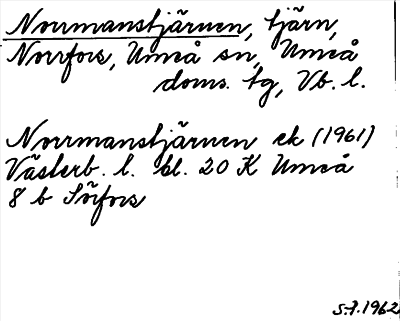 Norrmanstjärnen, tjärn,
Norrfors, Umeå sn, Umeå
doms. tg, Vb. l.
Norrmanstjärnen ek (1961)
Västerb. l. bl. 20 K Umeå
8 b Sörfors
5.7.1962